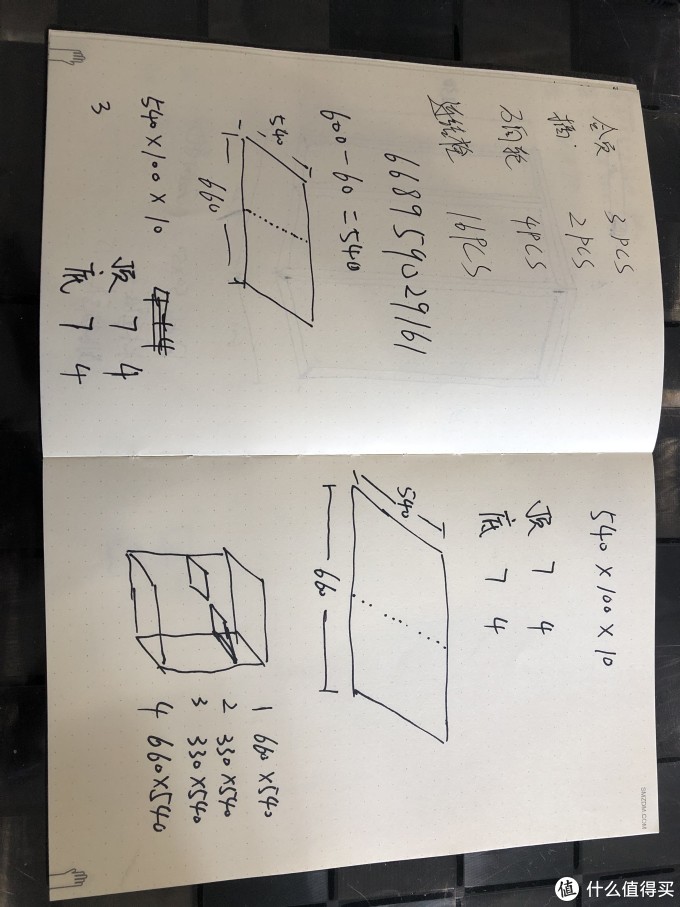 合页 3PCS
2PCS
万向轮 4PCS
16PCS
668959029161
600-60=540
540
660
540×100×10
顶 7 4
底 7 4
3
540×100×10
顶 7 4
底 7 4
540
660
1 660×540
2 330×540
3 330×540
4 660×540
SMZDM.COM
值 什么值得买